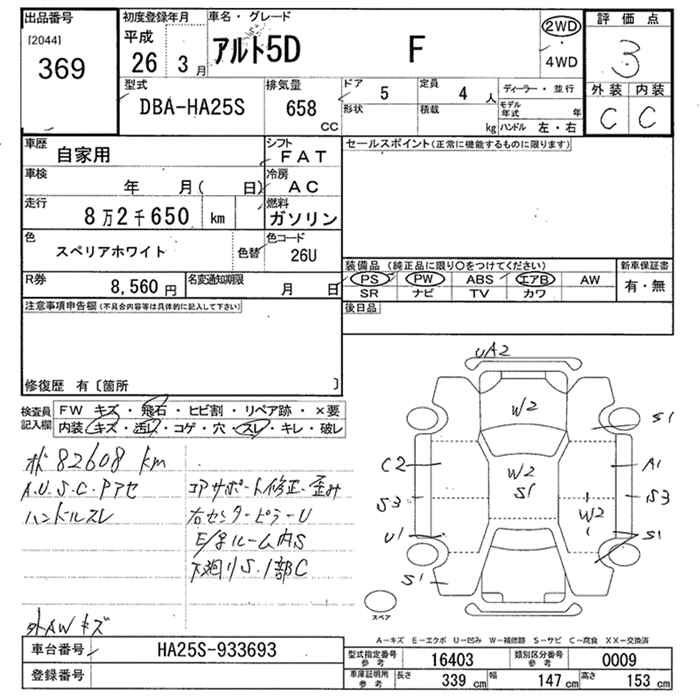 出品番号
[2044]
369
初度登録年月
平成
26 3月
車名・グレード
アルト5D F
2WD
4WD
評価点
3
外装 内装
C C
型式
DBA-HA25S
排気量
658
CC
ドア
5
定員
4 人
形状
積載
kg
ディーラー・並行
モデル年式 年
ハンドル 左・右
車歴
自家用
シフト
FAT
車検
年 月( 日)
冷房
AC
走行
8万2千650 km
燃料
ガソリン
色
スペリアホワイト
色替
色コード
26U
R券
8,560円
名変通知期限
月 日
セールスポイント(正常に機能するものに限ります)
装備品 (純正品に限り○をつけてください)
PS PW ABS エアB AW
SR ナビ TV カワ
新車保証書
有・無
後日品
注意事項申告欄(不具合内容等は具体的に記入して下さい)
修復歴 有〔箇所 〕
検査員記入欄
FW キズ・飛石・ヒビ割・リペア跡・×要
内装 キズ・汚れ・コゲ・穴・スレ・キレ・破レ
82608 km
A.U.S.C.Pアセ
ハンドルスレ
コアサポート修正・歪み
右センターピラーU
E/gルーム内S
下廻りS.1部C
外AWキズ
UA2
W2
S1
C2
W2
S1
A1
S3
S3
W2
U1
S1
S1
スペア
A-キズ E-エクボ U-凹み W-補修跡 S-サビ C-腐食 XX-交換済
車台番号
HA25S-933693
登録番号
型式指定番号
参考
16403
類別区分番号
参考
0009
車庫証明用
参考
長さ 339 cm
幅 147 cm
高さ 153 cm